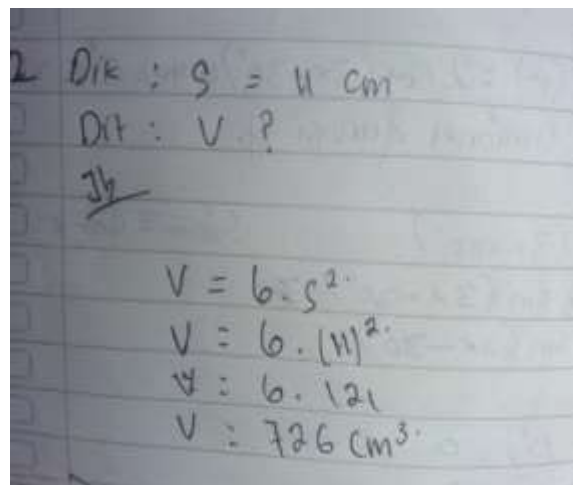 2 Dik : S = 11 cm
Dit : V ?
Jb
V = 6 . s².
V = 6 . (11)².
V = 6 . 121
V = 726 cm³.